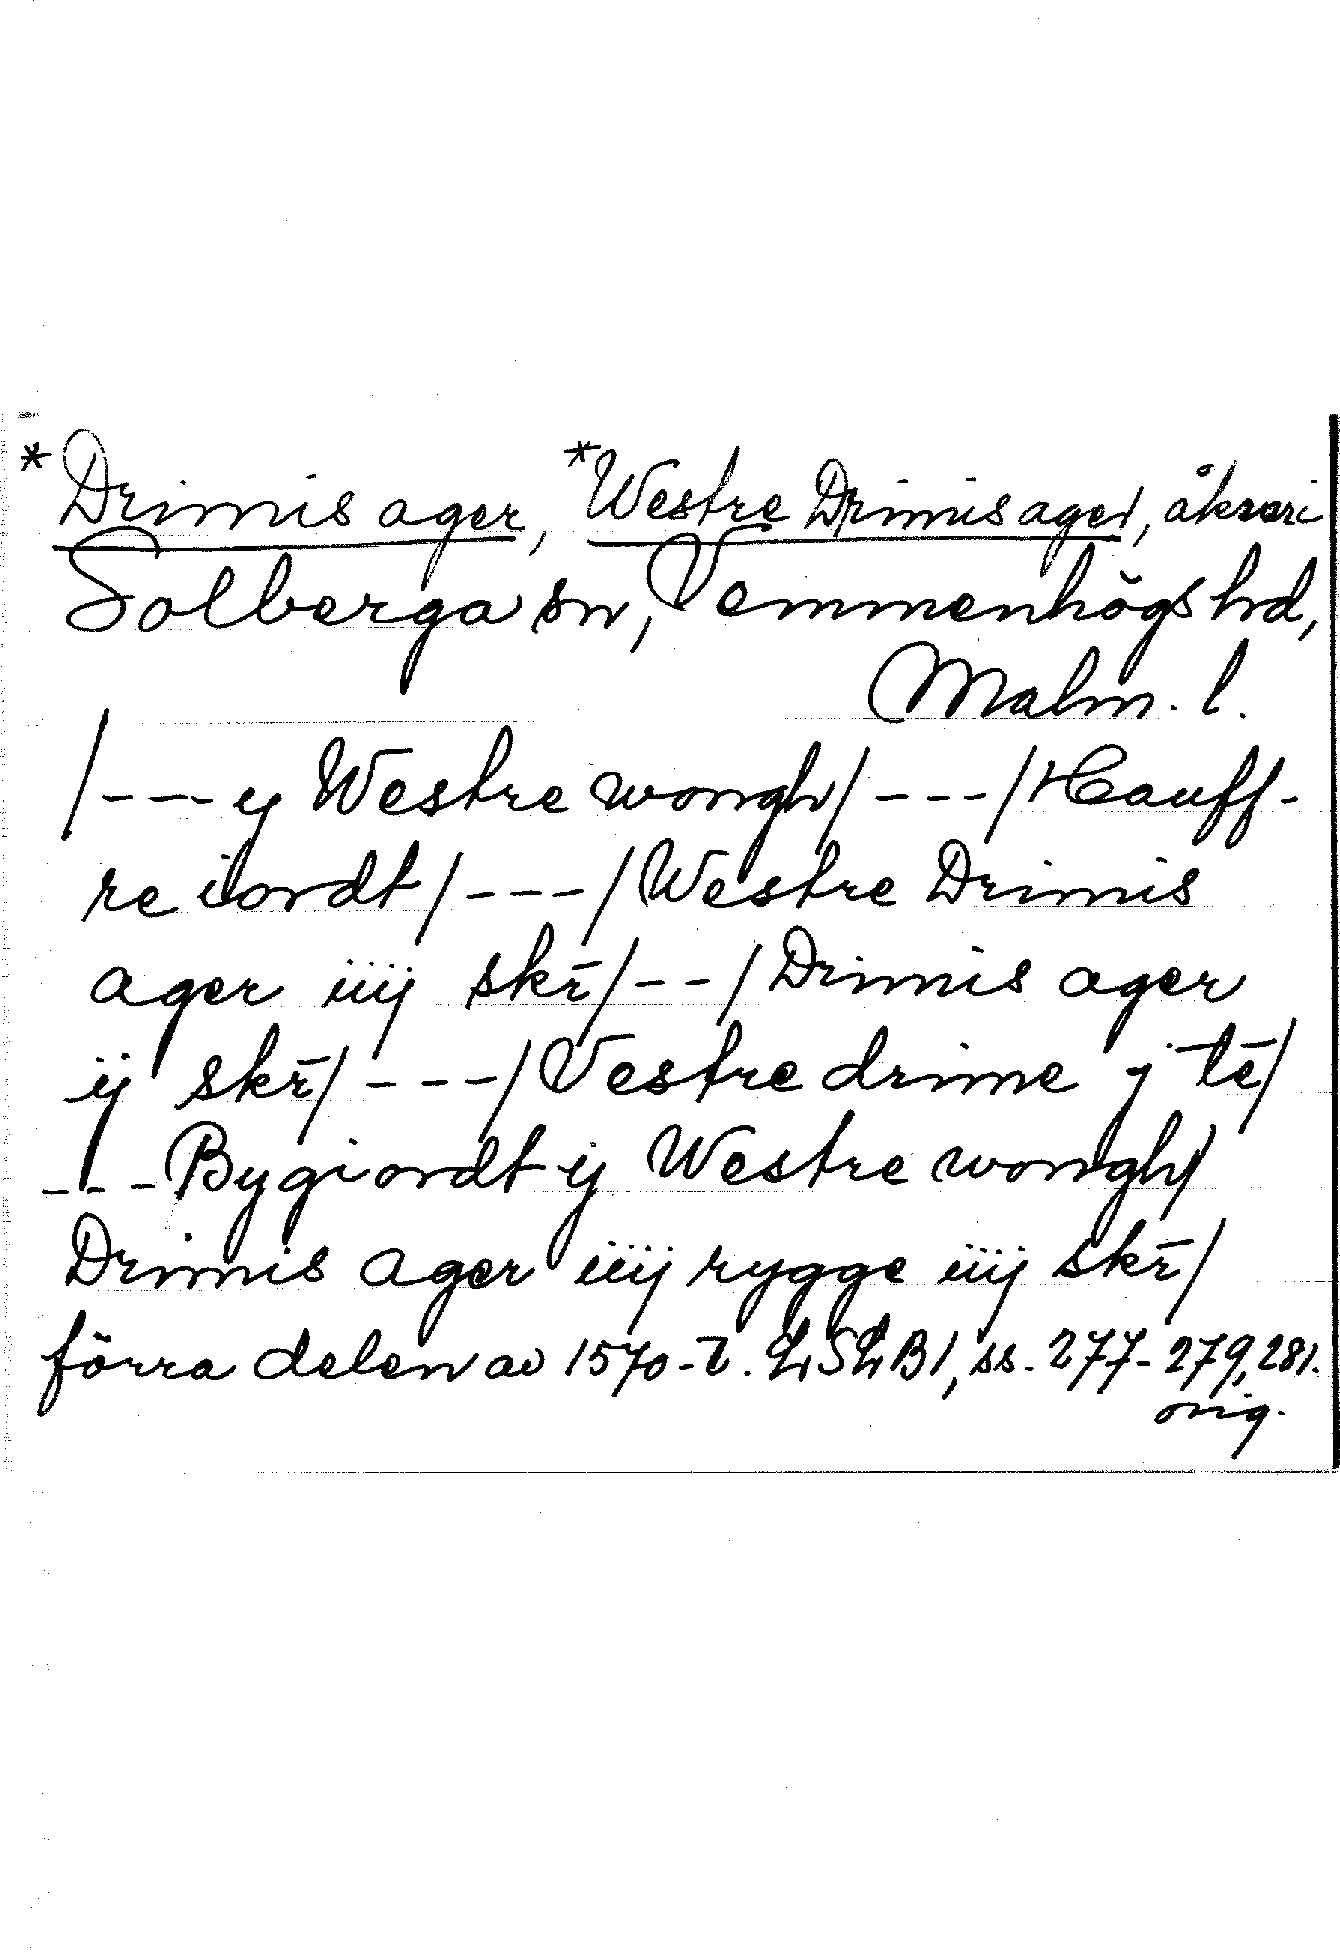 *Drimis ager, *Westre Drimis ager, åkrar i
Solberga sn, Vemmenhögs hd,
Malm. l.
/---y Westre wongh/---/Hauff-
re iordt/---/Westre Drimis
ager iiij skr̄/--/Drimis ager
ij skr̄/---/Vestre drime j tē/
---Bygiordt ij Westre wongh/
Drimis ager iiij rygge iiij skr̄/
förra delen av 1570-t. LSLB1, ss. 277-279, 281.
orig.